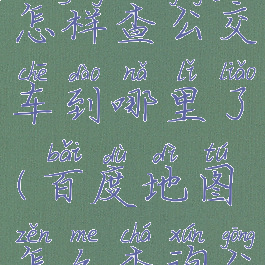 怎样查公交
chē dào nǎ lǐ liǎo
车到哪里了
bǎi dù dì tú
(百度地图
zěn me chá xún gōng
怎么查询公